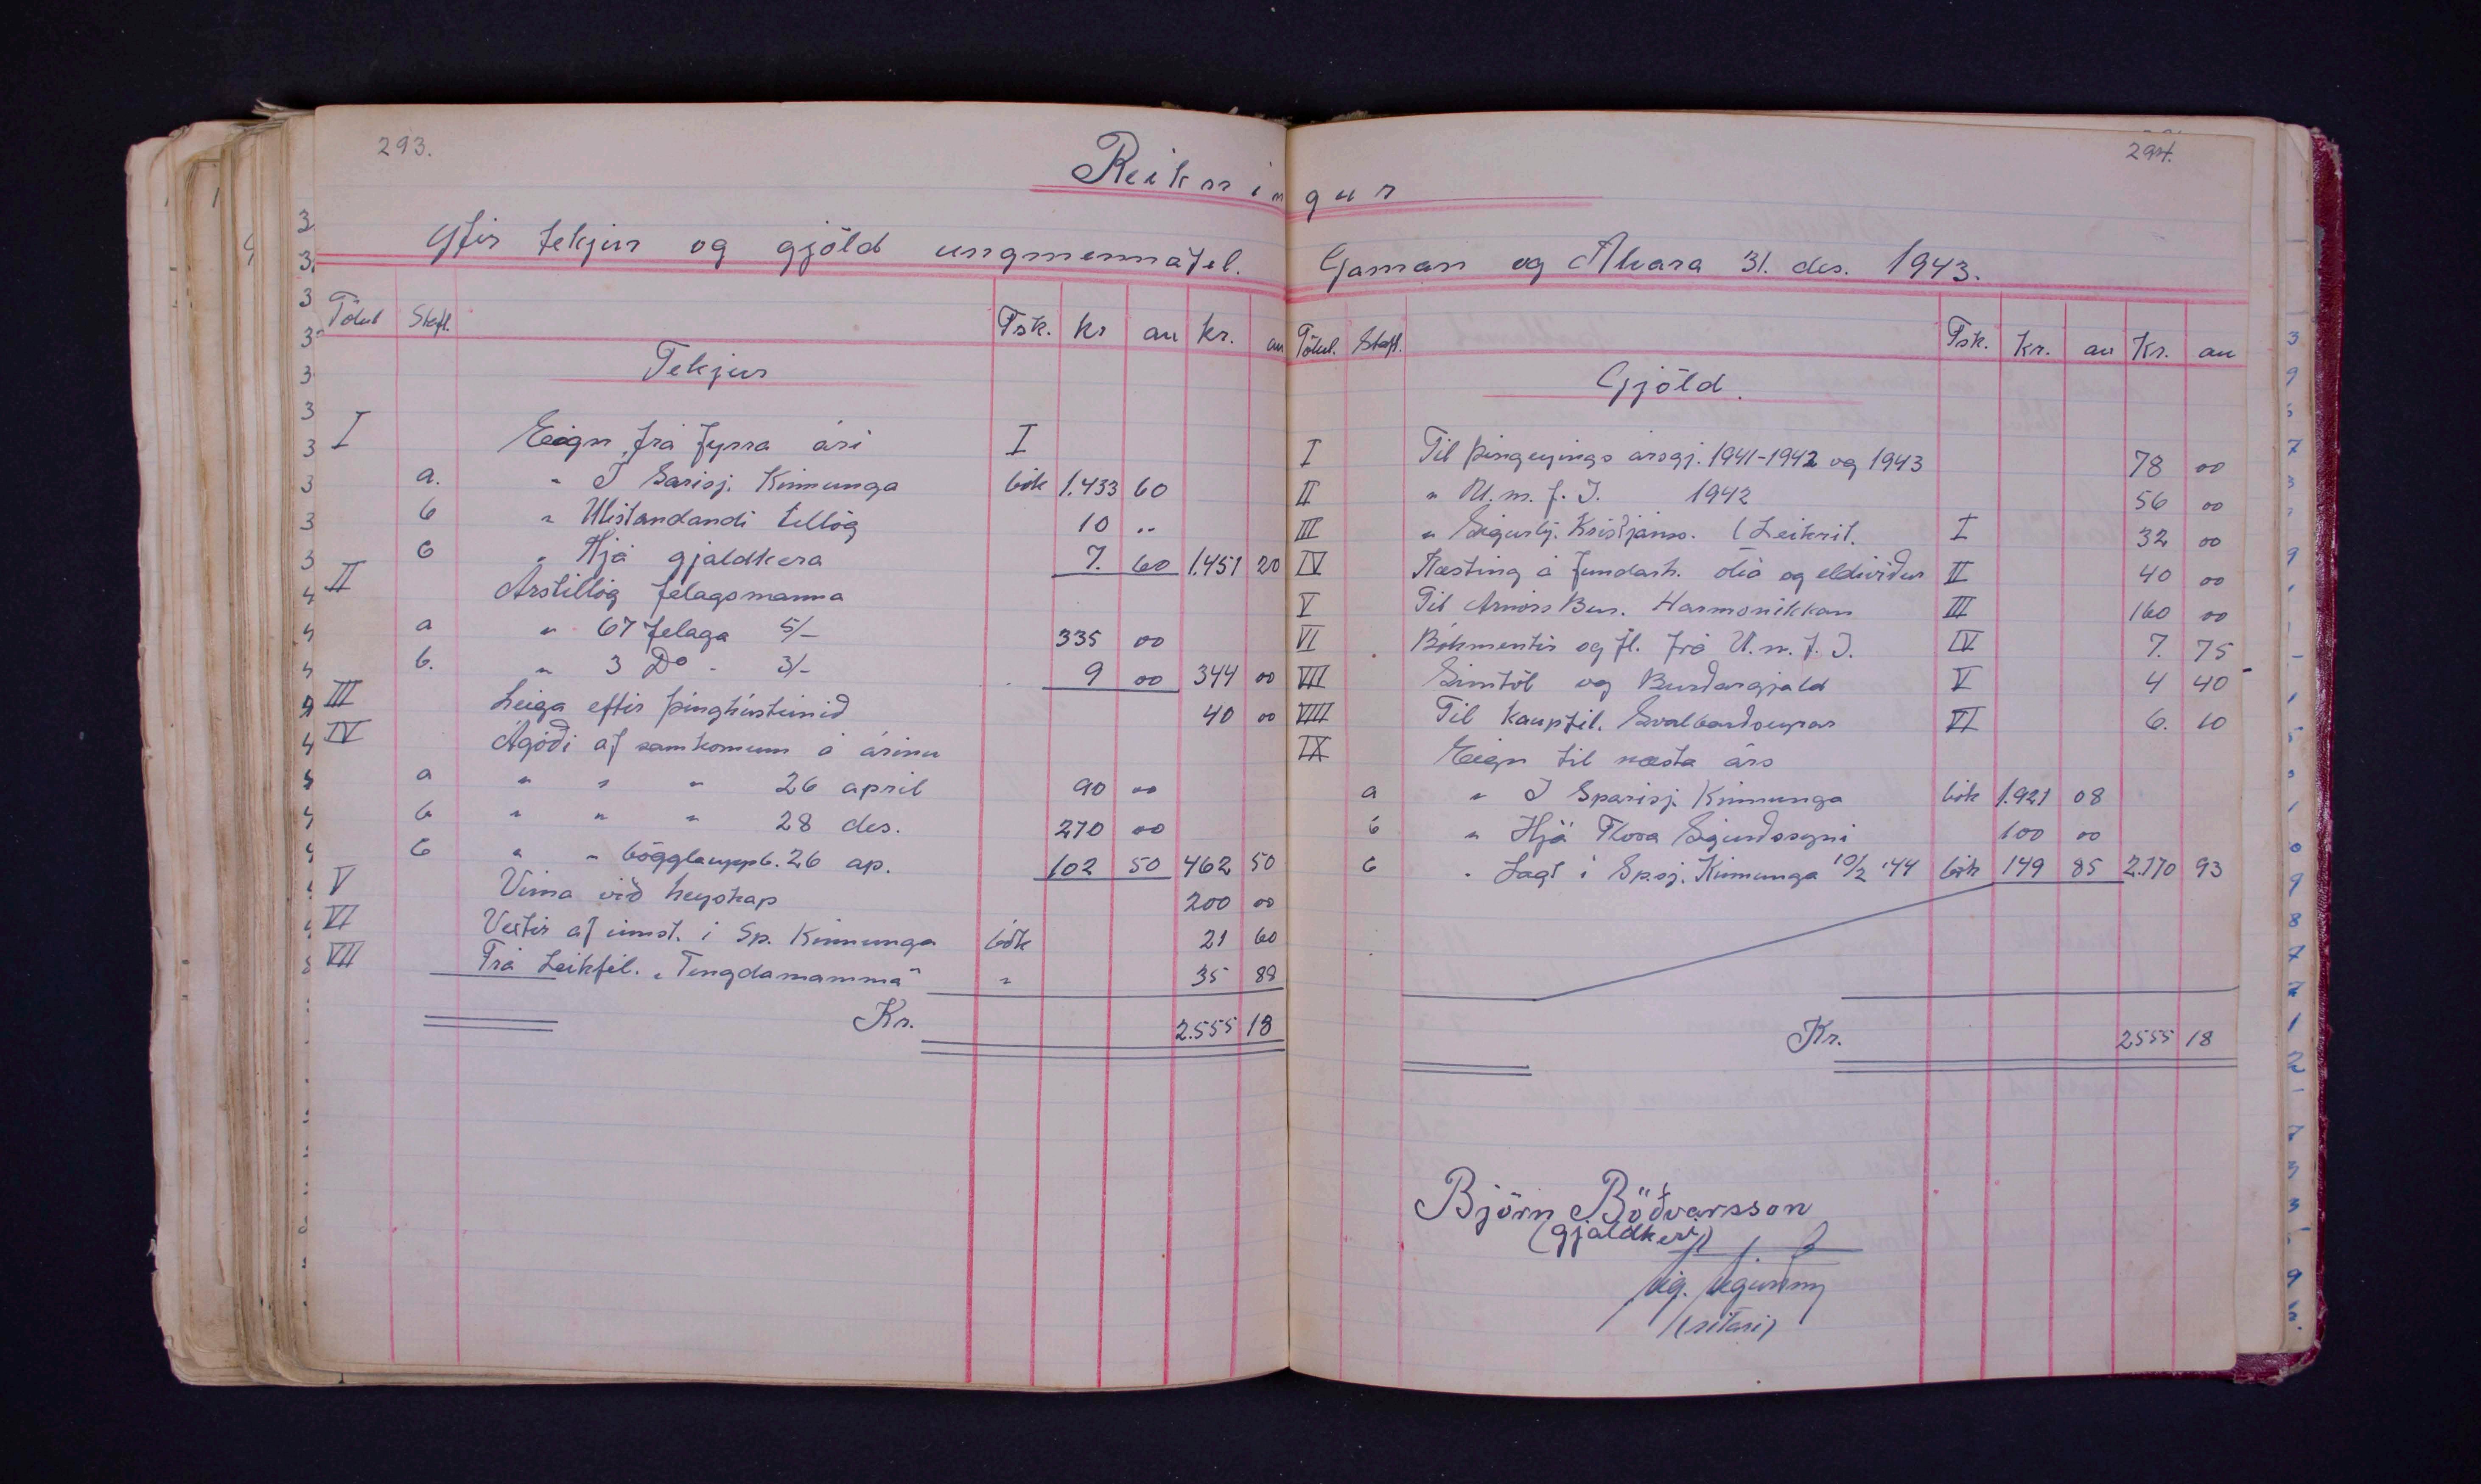 293.
Reikningur
Yfir tekjur og gjöld ungmennafel.
Tölul Stafl. Fsk. kr au kr. au
Tekjur
I Eign frá fyrra ári I
a. " I Sarisj. Kinnunga bók 1.433 60
b " Utistandandi tillög 10 ..
c " Hjá gjaldkera 7. 60 1.451 20
II Árstillög felagsmanna
a " 67 felaga 5/- 335 00
b. " 3 Do - 3/- 9 00 344 00
III Leiga eftir þinghústúnið 40 00
IV Ágóði af samkomum á árinu
a " " " 26 april 90 00
b " " " 28 des. 270 00
c " " bögglauppb. 26 ap. 102 50 462 50
V Vinna við heyskap 200 00
VI Vextir af innst. i Sp. Kinnunga bók 21 60
VII Frá Leikfél. "Tengdamamma" " 35 88
Kr. 2.555 18
294.
Gaman og Alvara 31. des. 1943.
Tölul. Stafl. Fsk. Kr. au Kr. au
Gjöld.
I Til þingeyings arsgj. 1941-1942 og 1943 78 00
II " U.m.f.I. 1942 56 00
III " Sigurbj. Kristjáns. (Leikrit. I 32 00
IV Ræsting á fundarh. olía og eldiviður II 40 00
V Til Arnórs Ben. Harmonikkan III 160 00
VI Bókmentir og fl. frá U.m.f.I. IV 7. 75
VII Símtöl og Burðargjald V 4 40
VIII Til kaupfél. Svalbarðseyrar VI 6. 10
IX Eign til næsta árs
a " I Sparisj. Kinnunga bók 1.921 08
b " Hjá Flosa Sigurðssyni 100 00
c " Lagt i Sp.sj. Kinnunga 10/2 '44 bók 149 85 2.170 93
Kr. 2555 18
Björn Böðvarsson
(gjaldkeri)
(ritari)